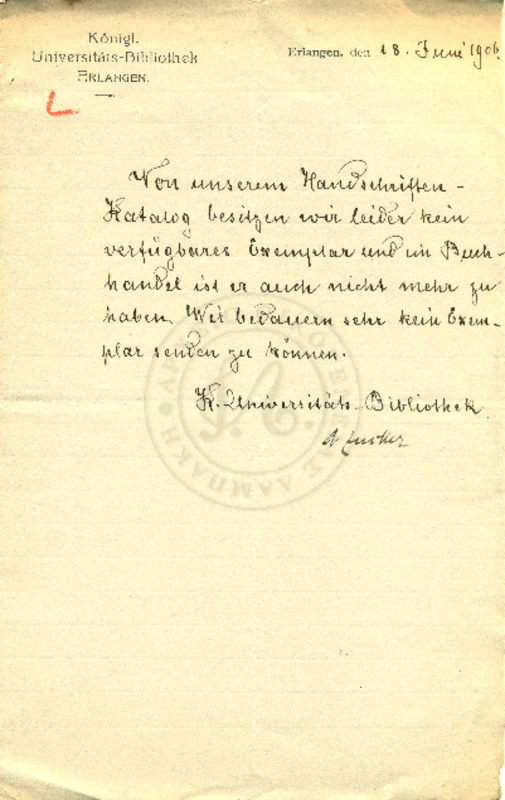 Königl.
Universitäts-Bibliothek
ERLANGEN.
Erlangen, den 18. Juni 1906.
Von unserem Handschriften-
Katalog besitzen wir leider kein
verfügbares Exemplar und im Buch-
handel ist er auch nicht mehr zu
haben. Wir bedauern sehr kein Exem-
plar senden zu können.
K. Universitäts-Bibliothek
Zucker